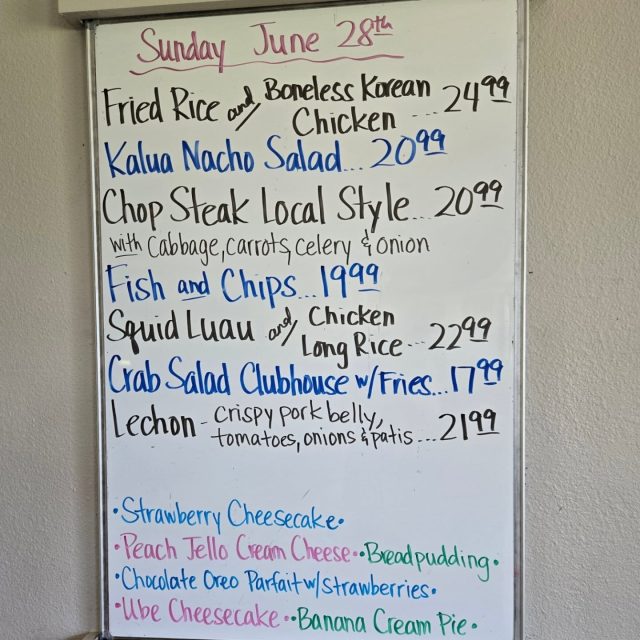 Sunday June 28th
Fried Rice and Boneless Korean
Chicken ... 24 99
Kalua Nacho Salad... 20 99
Chop Steak Local Style... 20 99
with Cabbage, carrots, celery & onion
Fish and Chips... 19 99
Squid Luau and Chicken
Long Rice ... 22 99
Crab Salad Clubhouse w/Fries... 17 99
Lechon - crispy pork belly,
tomatoes, onions & patis ... 21 99
•Strawberry Cheesecake•
•Peach Jello Cream Cheese• •Breadpudding•
•Chocolate Oreo Parfait w/strawberries•
•Ube Cheesecake• •Banana Cream Pie•